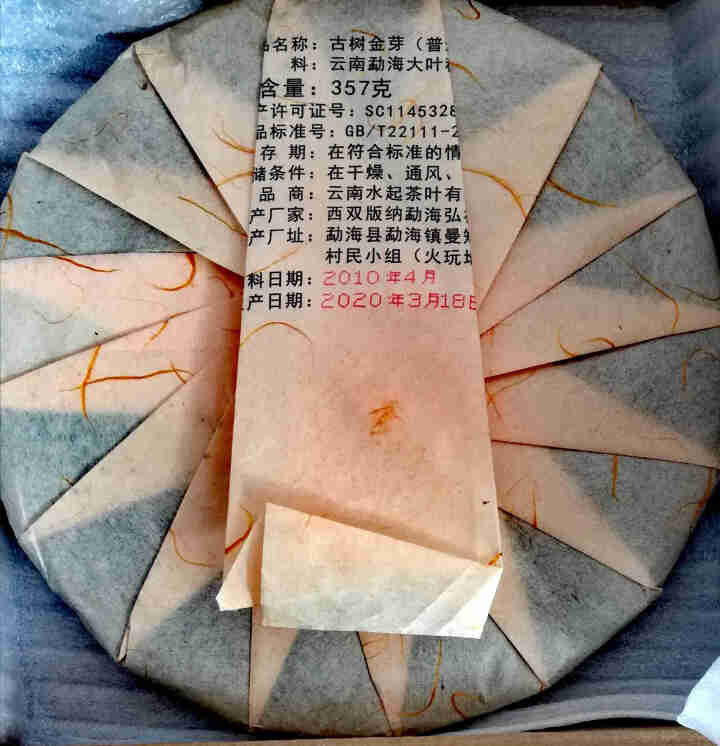 品名称：古树金芽（普
料：云南勐海大叶
含量：357克
产许可证号：SC1145328
品标准号：GB/T22111-2
存 期：在符合标准的情
储条件：在干燥、通风、
品 商：云南水起茶叶有
产厂家：西双版纳勐海弘
产厂址：勐海县勐海镇曼
村民小组（火玩
料日期：2010年4月
产日期：2020年3月18日